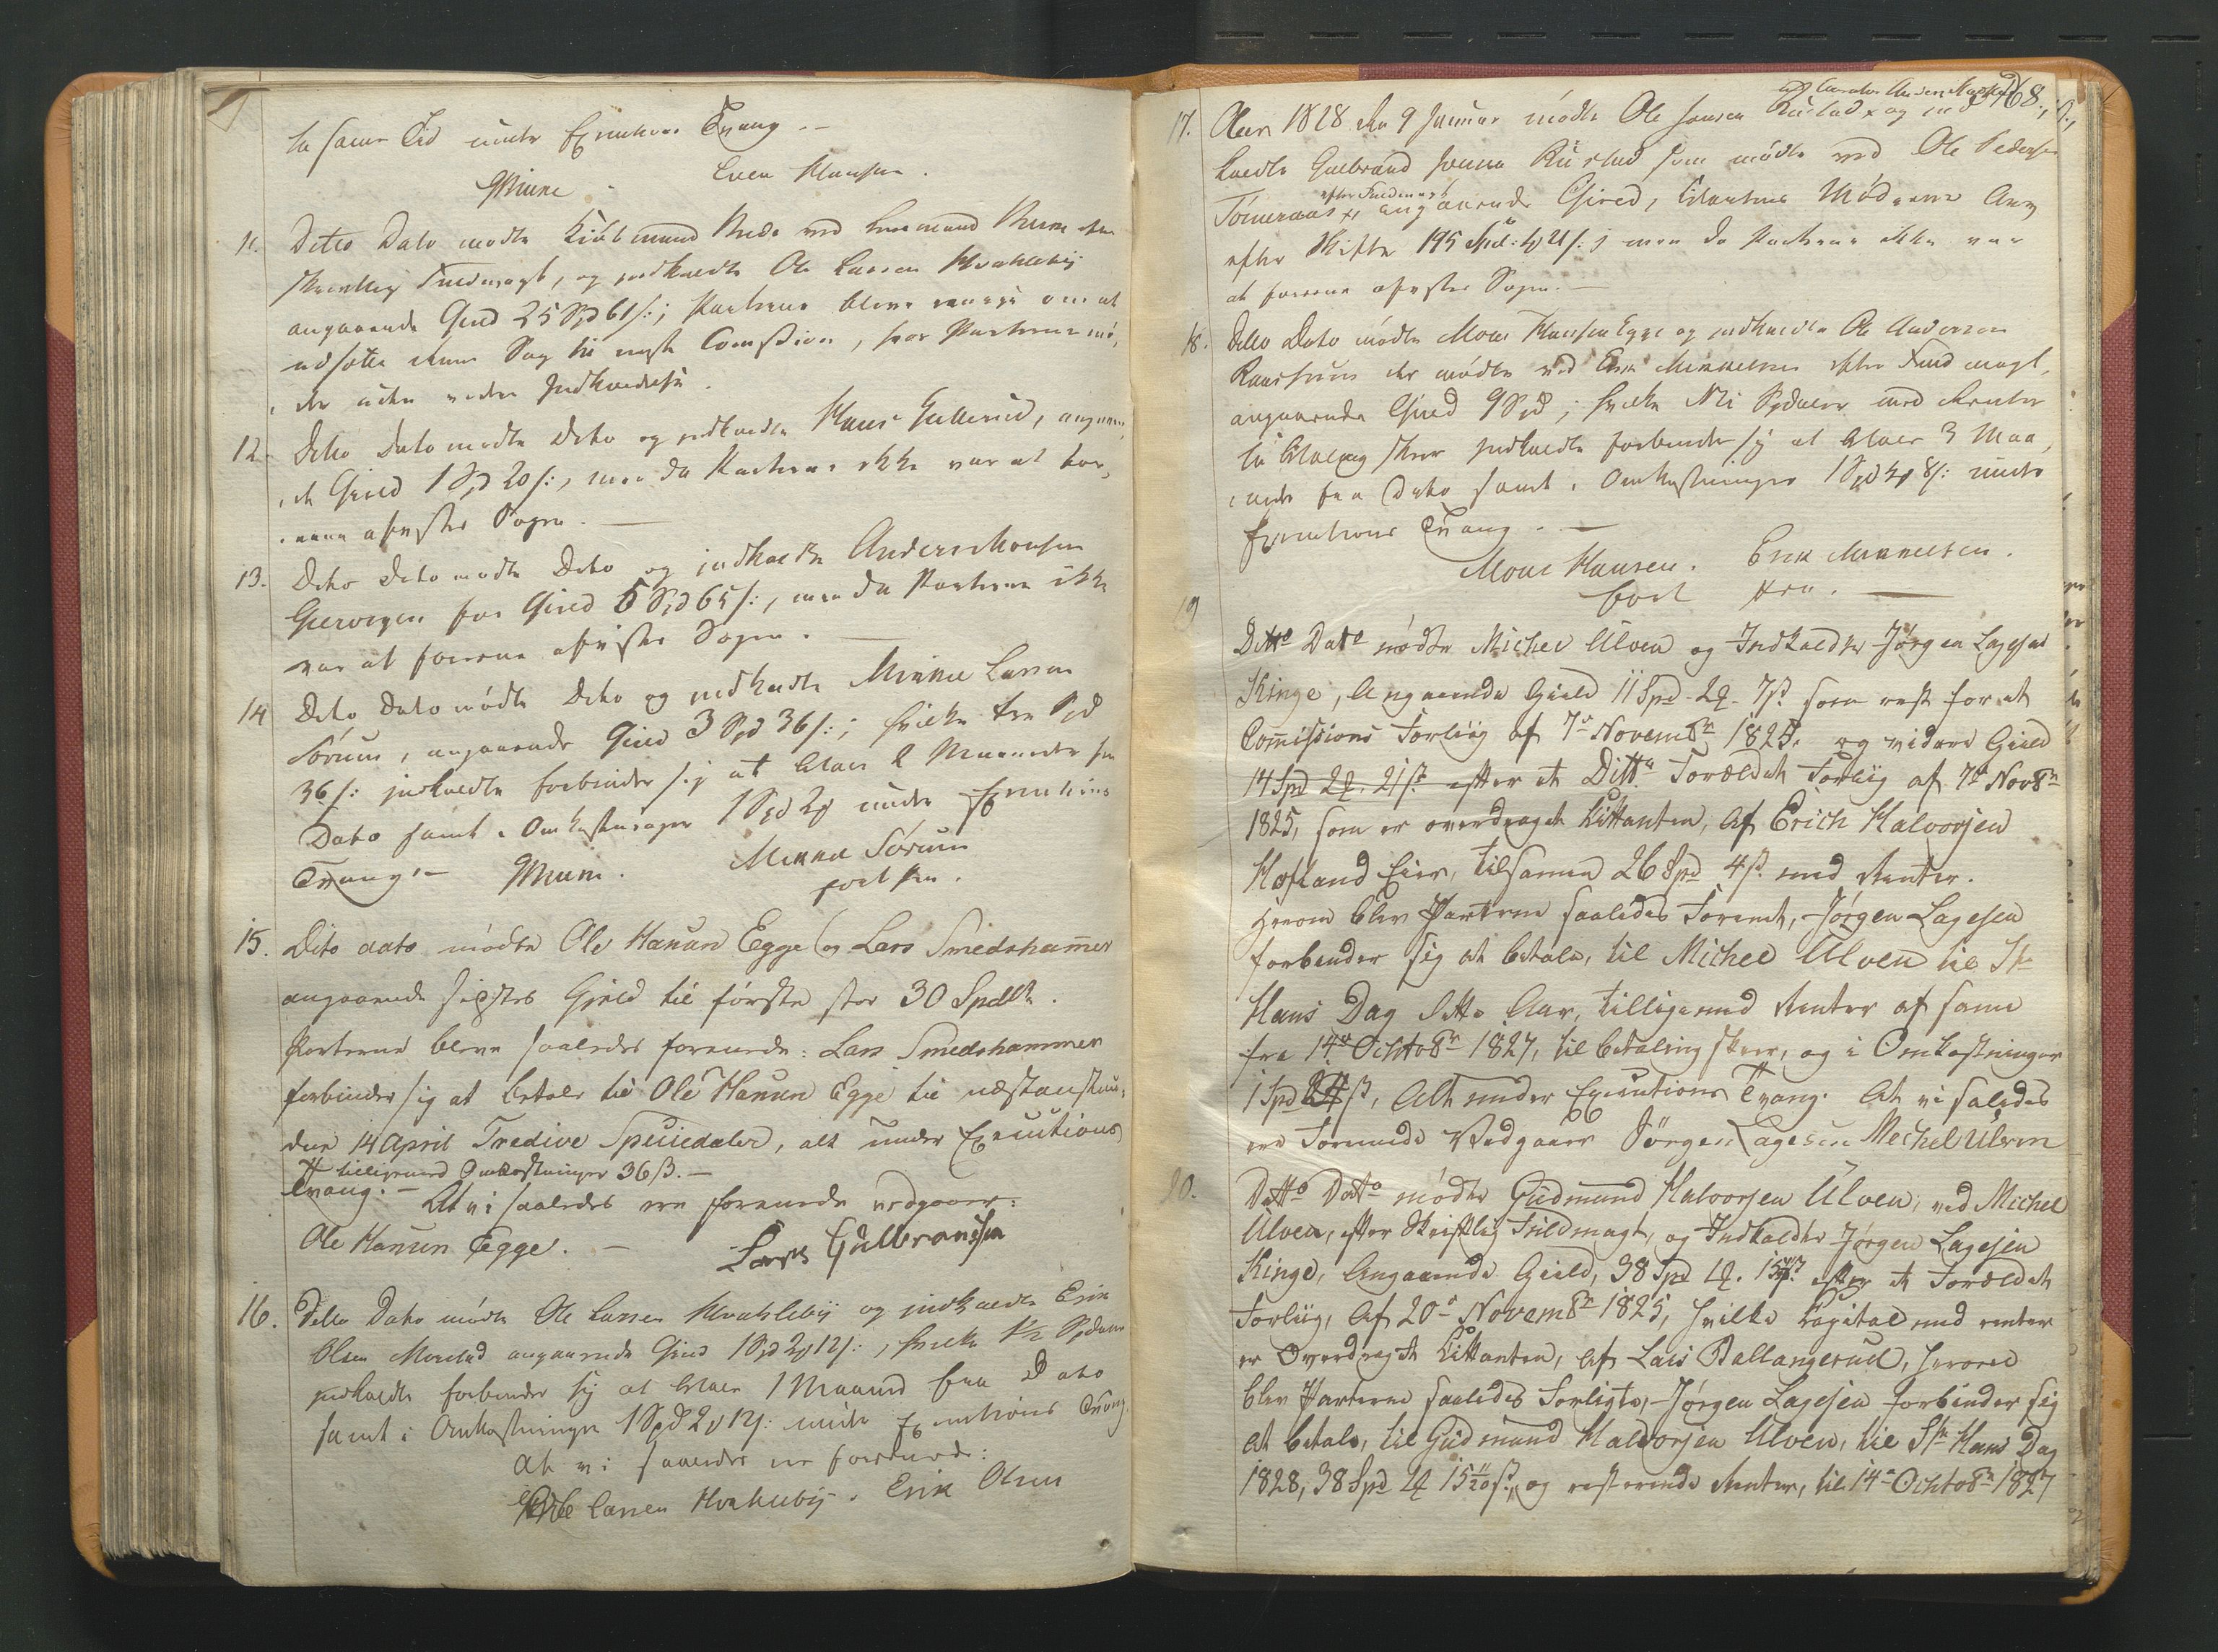 to samme Tid under Executions Tvang.-
Even Hansen.
GMune
11. Ditto Dato mødte Kiøbmand med Mune efter
skrævtlig Fuldmagt, og indkaldte Ole Larsen Hvahlebÿ
angaaende Gield 25 Spd 61 s:; Parterne bleve eenige om at
udsætte denne Sag til næste Comission, hvor Parterne mø-
der uden videre Indkaldelse.
12. Ditto Dato mødte Dito og indkaldte Hans Gullerud, angaaen-
de Gield 1 Spd 20 s:, men da Parterne ikke var at for-
ene afvistes Sagen.-
13. Dito Dato mødte Dito og indkaldte Anders Monsen
for Gield 5 Spd 65 s:, men da Parterne ikke
var at forene afvistes Sagen.
14 Dito Dato mødte Dito og indkaldte Larsen
Sørum, angaaende Gield 3 Spd 36 s:; hvilke tre Spd
36 s: indkaldte forbinder sig at betale 2 Maaneder fra
Dato samt i Omkostninger 1 Spd 2 under Executions
Tvang.- GMune. Sørum
15. Dito dato mødte Ole Hansen Egge og Lars Smedshammer
angaaende sidstes Gjeld til første stor 30 Spdlr.
Parterne bleve saaledes forenede: Lars Smedshammer
forbinder sig at betale til Ole Hansen Egge til næstanstun-
dene 14 April Tredive Speciedaler, alt under Executions
# tilligemed Omkostninger 36 ß.-
Tvang.- At vi saaledes ere forenede vedgaaer:
Ole Hansen Egge.- Lars Gulbrandsen
16. Ditto Dato mødte Ole Larsen Hvahlebÿ og indkaldte Erik
Olsen angaaende Gield 1 Spd 2 12 s:, hvilke Spdaler
indkaldte forbinder sig at betale 1 Maaned fra Dato
samt i Omkostninger 1 Spd 2 12 s: under Executions Tvang.
At vi saaledes ere forenede:
Ole Larsen Hvahlebÿ. Erik Olsen
168.
17. Aar 1828 den 9 Januar mødte Ole Jonsen Rustad og ind-
kaldte Gulbrand Rustad som mødte ved Ole Pedersen
efter Fuldmagt
angaaende Gield, Mødrene Arv
efter Skifte 195 Spd: 21 s:; men da Parterne ikke var
at forene afvistes Sagen.-
18. Ditto Dato mødte Mons Hansen Egge og indkaldte Ole Andersen
der mødte ved Erik Mikkelsen efter Fuldmagt,
angaaende Gield 9 Spd; hvilke Ni Spdaler med Renter
til Betaling skeer indkaldte forbinder sig at betale 3 Maa-
neder fra Dato samt i Omkostninger 1 Spd 8 s: under
Executions Tvang.-
Mons Hansen. Erik Mikkelsen.
19 Ditto Dato mødte Michel Ulven og Indkaldte Jørgen Lagesen
Kinge, Angaaende Gield 11 Spd 2 7 ß som rest for et
Commissions Forliig af 7de Novembr 1825, og videre Gield
14 Spd 2 21 ß efter et Ditto Forældet Forliig af 7de Novbr
1825, som er overdraget Citanten, af Erich Halvorsen
Hofland Eier, tilsamen 26 Spd 4 ß med Renter.
Herom blev Parterne saaledes Forenet, Jørgen Lagesen
forbinder sig at betale, til Michel Ulven til St.
Hans Dag dette Aar, tilligemed Renter af same
fra 14de Octobr 1827, til betaling skeer, og i Omkostninger
1 Spd 24 ß, Alt under Executions Tvang. At vi saledes
ere Forenede Vedgaaer Jörgen Lagesen Mechel Ulven
20. Ditto Dato mødte Gudmund Halvorsen Ulven, ved Michel
Ulven, efter Skriftlig Fuldmagt, og Indkaldte Jørgen Lagesen
Kinge, Angaaende Gield, 38 Spd 15 ß efter et Forældet
Forliig, Af 20de Novembr 1825, hvilke Capital med renter
er Overdraget Citanten, af Lars Ballangerud, hvorved
blev Parterne saaledes Forligte, Jørgen Lagesen forbinder sig
at betale, til Gudmund Halvorsen Ulven, til St. Hans Dag
1828, 38 Spd 15 ß, og resterende Renter, til 14de Octobr 1827